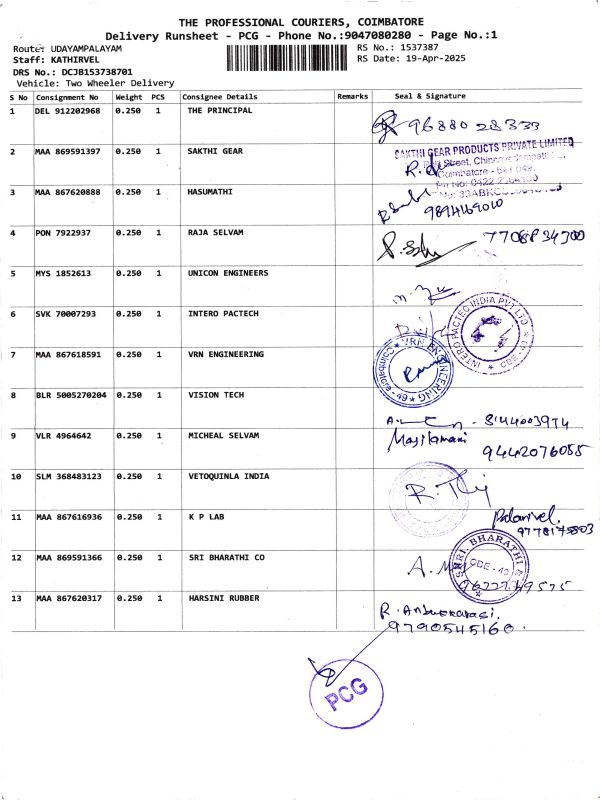 THE PROFESSIONAL COURIERS, COIMBATORE
Delivery Runsheet - PCG - Phone No.:9047080280 - Page No.:1
Route: UDAYAMPALAYAM
RS No.: 1537387
Staff: KATHIRVEL
RS Date: 19-Apr-2025
DRS No.: DCJB153738701
Vehicle: Two Wheeler Delivery
S No Consignment No Weight PCS Consignee Details Remarks Seal & Signature
1 DEL 912202968 0.250 1 THE PRINCIPAL 96880 28333
2 MAA 869591397 0.250 1 SAKTHI GEAR
SAKTHI GEAR PRODUCTS PRIVATE LIMITED
Street,
Coimbatore - 641 049.
3 MAA 867620888 0.250 1 HASUMATHI
9894169010
4 PON 7922937 0.250 1 RAJA SELVAM
5 MYS 1852613 0.250 1 UNICON ENGINEERS
6 SVK 70007293 0.250 1 INTERO PACTECH
INTERO PACTEC INDIA PVT LTD
CDE - 49
7 MAA 867618591 0.250 1 VRN ENGINEERING
VRN ENGINEERING
Coimbatore - 49
8 BLR 5005270204 0.250 1 VISION TECH
8144003974
9 VLR 4964642 0.250 1 MICHEAL SELVAM
Masilamani
9442076055
10 SLM 368483123 0.250 1 VETOQUINLA INDIA
11 MAA 867616936 0.250 1 K P LAB
Palanivel.
9778175803
12 MAA 869591366 0.250 1 SRI BHARATHI CO
SHRI. BHARATHI
CDE - 49
13 MAA 867620317 0.250 1 HARSINI RUBBER
9790545160.
PCG